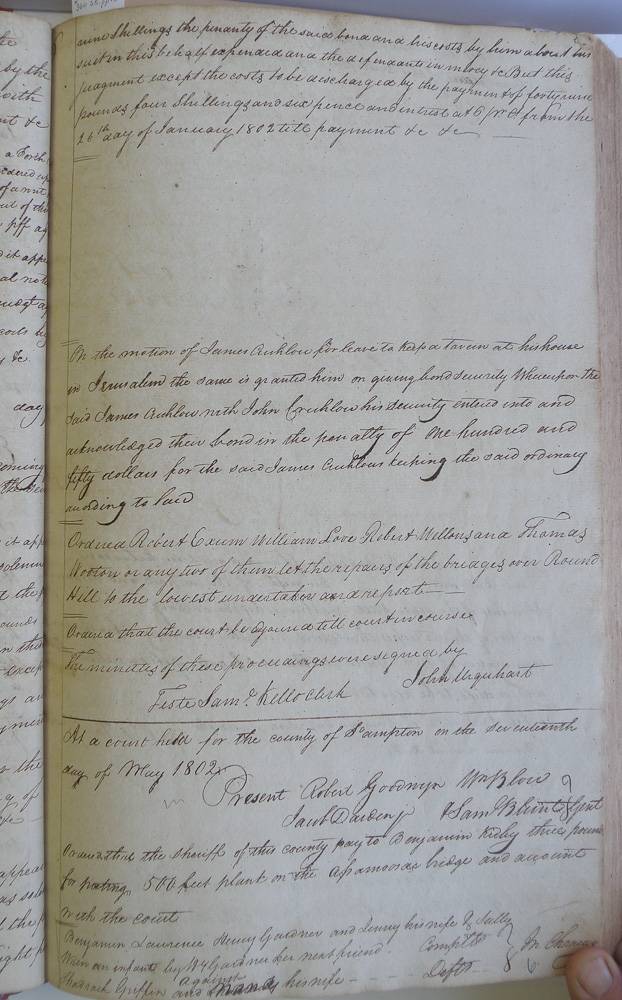 nine shillings the penalty of the said bond and his costs by him about his
suit in this behalf expended and the defendants in mercy &c But this
judgment except the costs to be discharged by the payment of forty nine
pounds four Shillings and six pence and interest at 6 from the
26th day of January 1802 till payment &c &c
On the motion of James Cruhlow for leave to keep a tavern at his house
in Jerusalem the same is granted him on giving bond & security Whereupon the
said James Cruhlow with John Cruhlow his security entered into and
acknowledged their bond in the penalty of one hundred and
fifty dollars for the said James Cruhlows keeping the said ordinary
according to law
Ordered Robert Exum William Love Robert Mellons and Thomas
Wooton or any two of them let the repairs of the bridges over Round
Hill to the lowest undertaker and report
Ordered that the court be adjourned till court in course
The minutes of these proceedings were signed by
John Urquhart
Teste Saml Kello clerk
At a court held for the county of So ampton on the seventeenth
day of May 1802
Present Robert Goodwyn Wm Blow
Jacob Darden & Saml Blunt Gent
Ordered that the sheriff of this county pay to Benjamin Kirby three pounds
for 500 feet plank on the Assamoosax bridge and account
with the court
Benjamin Lawrence Henry Gardner and Jenny his wife & Sally
an infant by Gardner her next friend Complts
against In Chancery
Shadrach Griffin and his wife Defts